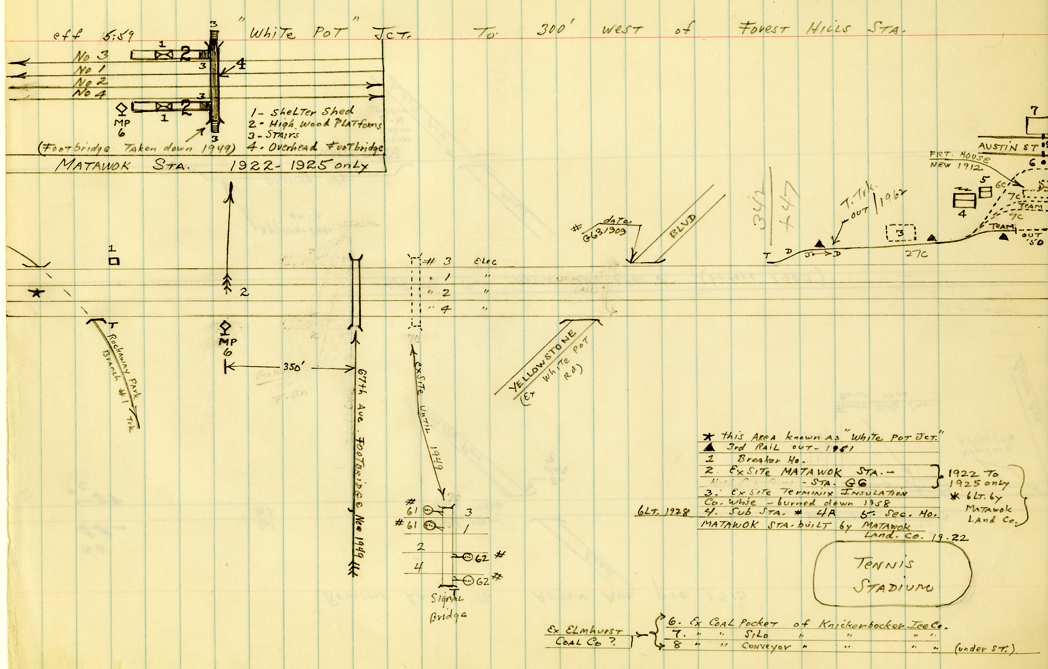 eff 5:59 "White Pot" Jct. To 300' west of Forest Hills Sta.
3
1 2
No 3
3 4
No 1
No 2
No 4
3
MP 6
1 2
3
1 - Shelter Shed
2 - High Wood Platforms
3 - Stairs
4 - Overhead Footbridge
(Footbridge Taken down 1949)
MATAWOK STA. 1922-1925 only
7
AUSTIN ST
6
FRT. HOUSE
NEW 1912
5
6C
7C
TEAM
7C
4
TEAM
OUT '50
342
+47
T. Trk. OUT / 1962
3
T D D
27C
# date
G63.1909
BLVD
1
# 3 Elec
" 1 "
" 2 "
" 4 "
2
MP
6
350'
Rockaway Park Branch #1 Trk
67th Ave. Footbridge New 1949
exsite until 1949
YELLOWSTONE
(Ex White Pot Rd)
#
61 3
# 61 1
2 62 #
4 62 #
Signal
Bridge
★ this Area known as "White Pot Jct."
▲ 3rd RAIL out - 1951
1 Breaker Ho.
2. Ex Site MATAWOK STA. -
- STA. GG
1922 To
1925 only
* 6LT. by
MATAWOK
Land Co.
3. Ex Site Terminix Insulation
Co. Whse - burned down 1958
6LT. 1928 4. Sub STA. # 4A 5. Sec. Ho.
MATAWOK STA. built by MATAWOK
Land. Co. 19.22
TENNIS
STADIUM
Ex ELMHURST
COAL CO ?
6. Ex Coal Pocket of Knickerbocker Ice Co.
7. " " SILO " " " "
8 " " Conveyor " " " " (under ST.)